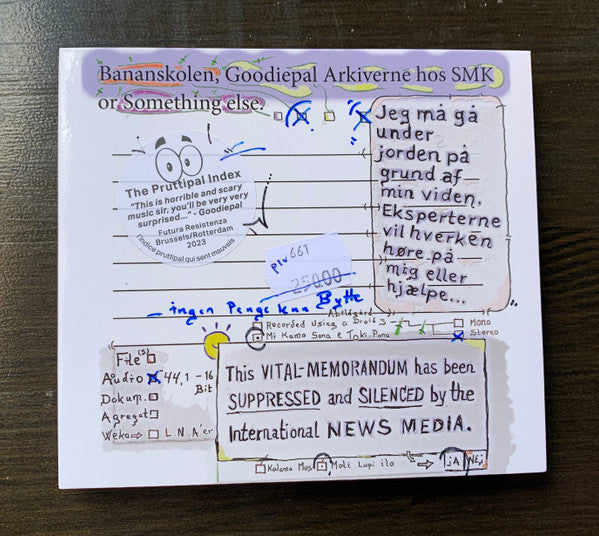 Bananskolen, Goodiepal Arkiverne hos SMK
or Something else.
Jeg må gå
under
jorden på
grund af
min viden.
Eksperterne
vil hverken
høre på
mig eller
hjælpe...
The Pruttipal Index
"This is horrible and scary
music sir, you'll be very very
surprised..." - Goodiepal
Futura Resistenza
Brussels/Rotterdam
2023
l'indice pruttipal qui sent mauvais
PIV 667
250.00
- ingen Penge kun Bytte
Recorded using a Droid 3
Mono
Mi Kama Sona e Toki Pona
Stereo
File(s)
Audio 44,1 - 16
Bit
Dokum.
Agregat
Weka⇒ L.N.A'er
This VITAL-MEMORANDUM has been
SUPPRESSED and SILENCED by the
International NEWS MEDIA.
Kalama Mus
Moli Lupi ilo
⇒ jA NEj